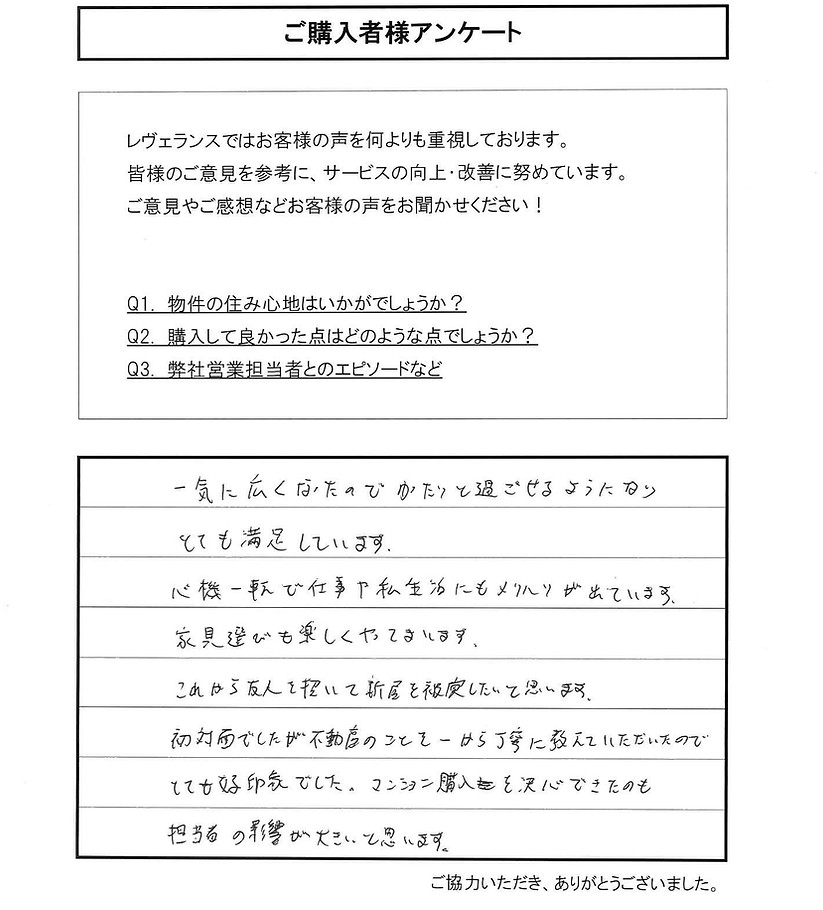 ご購入者様アンケート
レヴェランスではお客様の声を何よりも重視しております。
皆様のご意見を参考に、サービスの向上・改善に努めています。
ご意見やご感想などお客様の声をお聞かせください！
Q1. 物件の住み心地はいかがでしょうか？
Q2. 購入して良かった点はどのような点でしょうか？
Q3. 弊社営業担当者とのエピソードなど
一気に広くなったので ゆったりと過ごせるようになり
とても満足しています。
心機一転で仕事や私生活にもメリハリが出ています。
家具選びも楽しくやってまいます、
これから友人を招いて新居を披露したいと思います。
初対面でしたが不動産のことを一から丁寧に教えていただいたので
とても好印象でした。マンション購入を決心できたのも
担当者の影響が大きいと思います。
ご協力いただき、ありがとうございました。